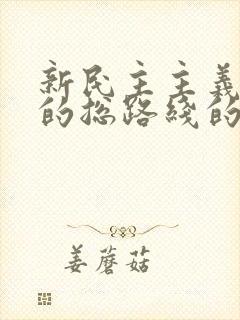 新民主主義
的总路线的
姜蘑菇